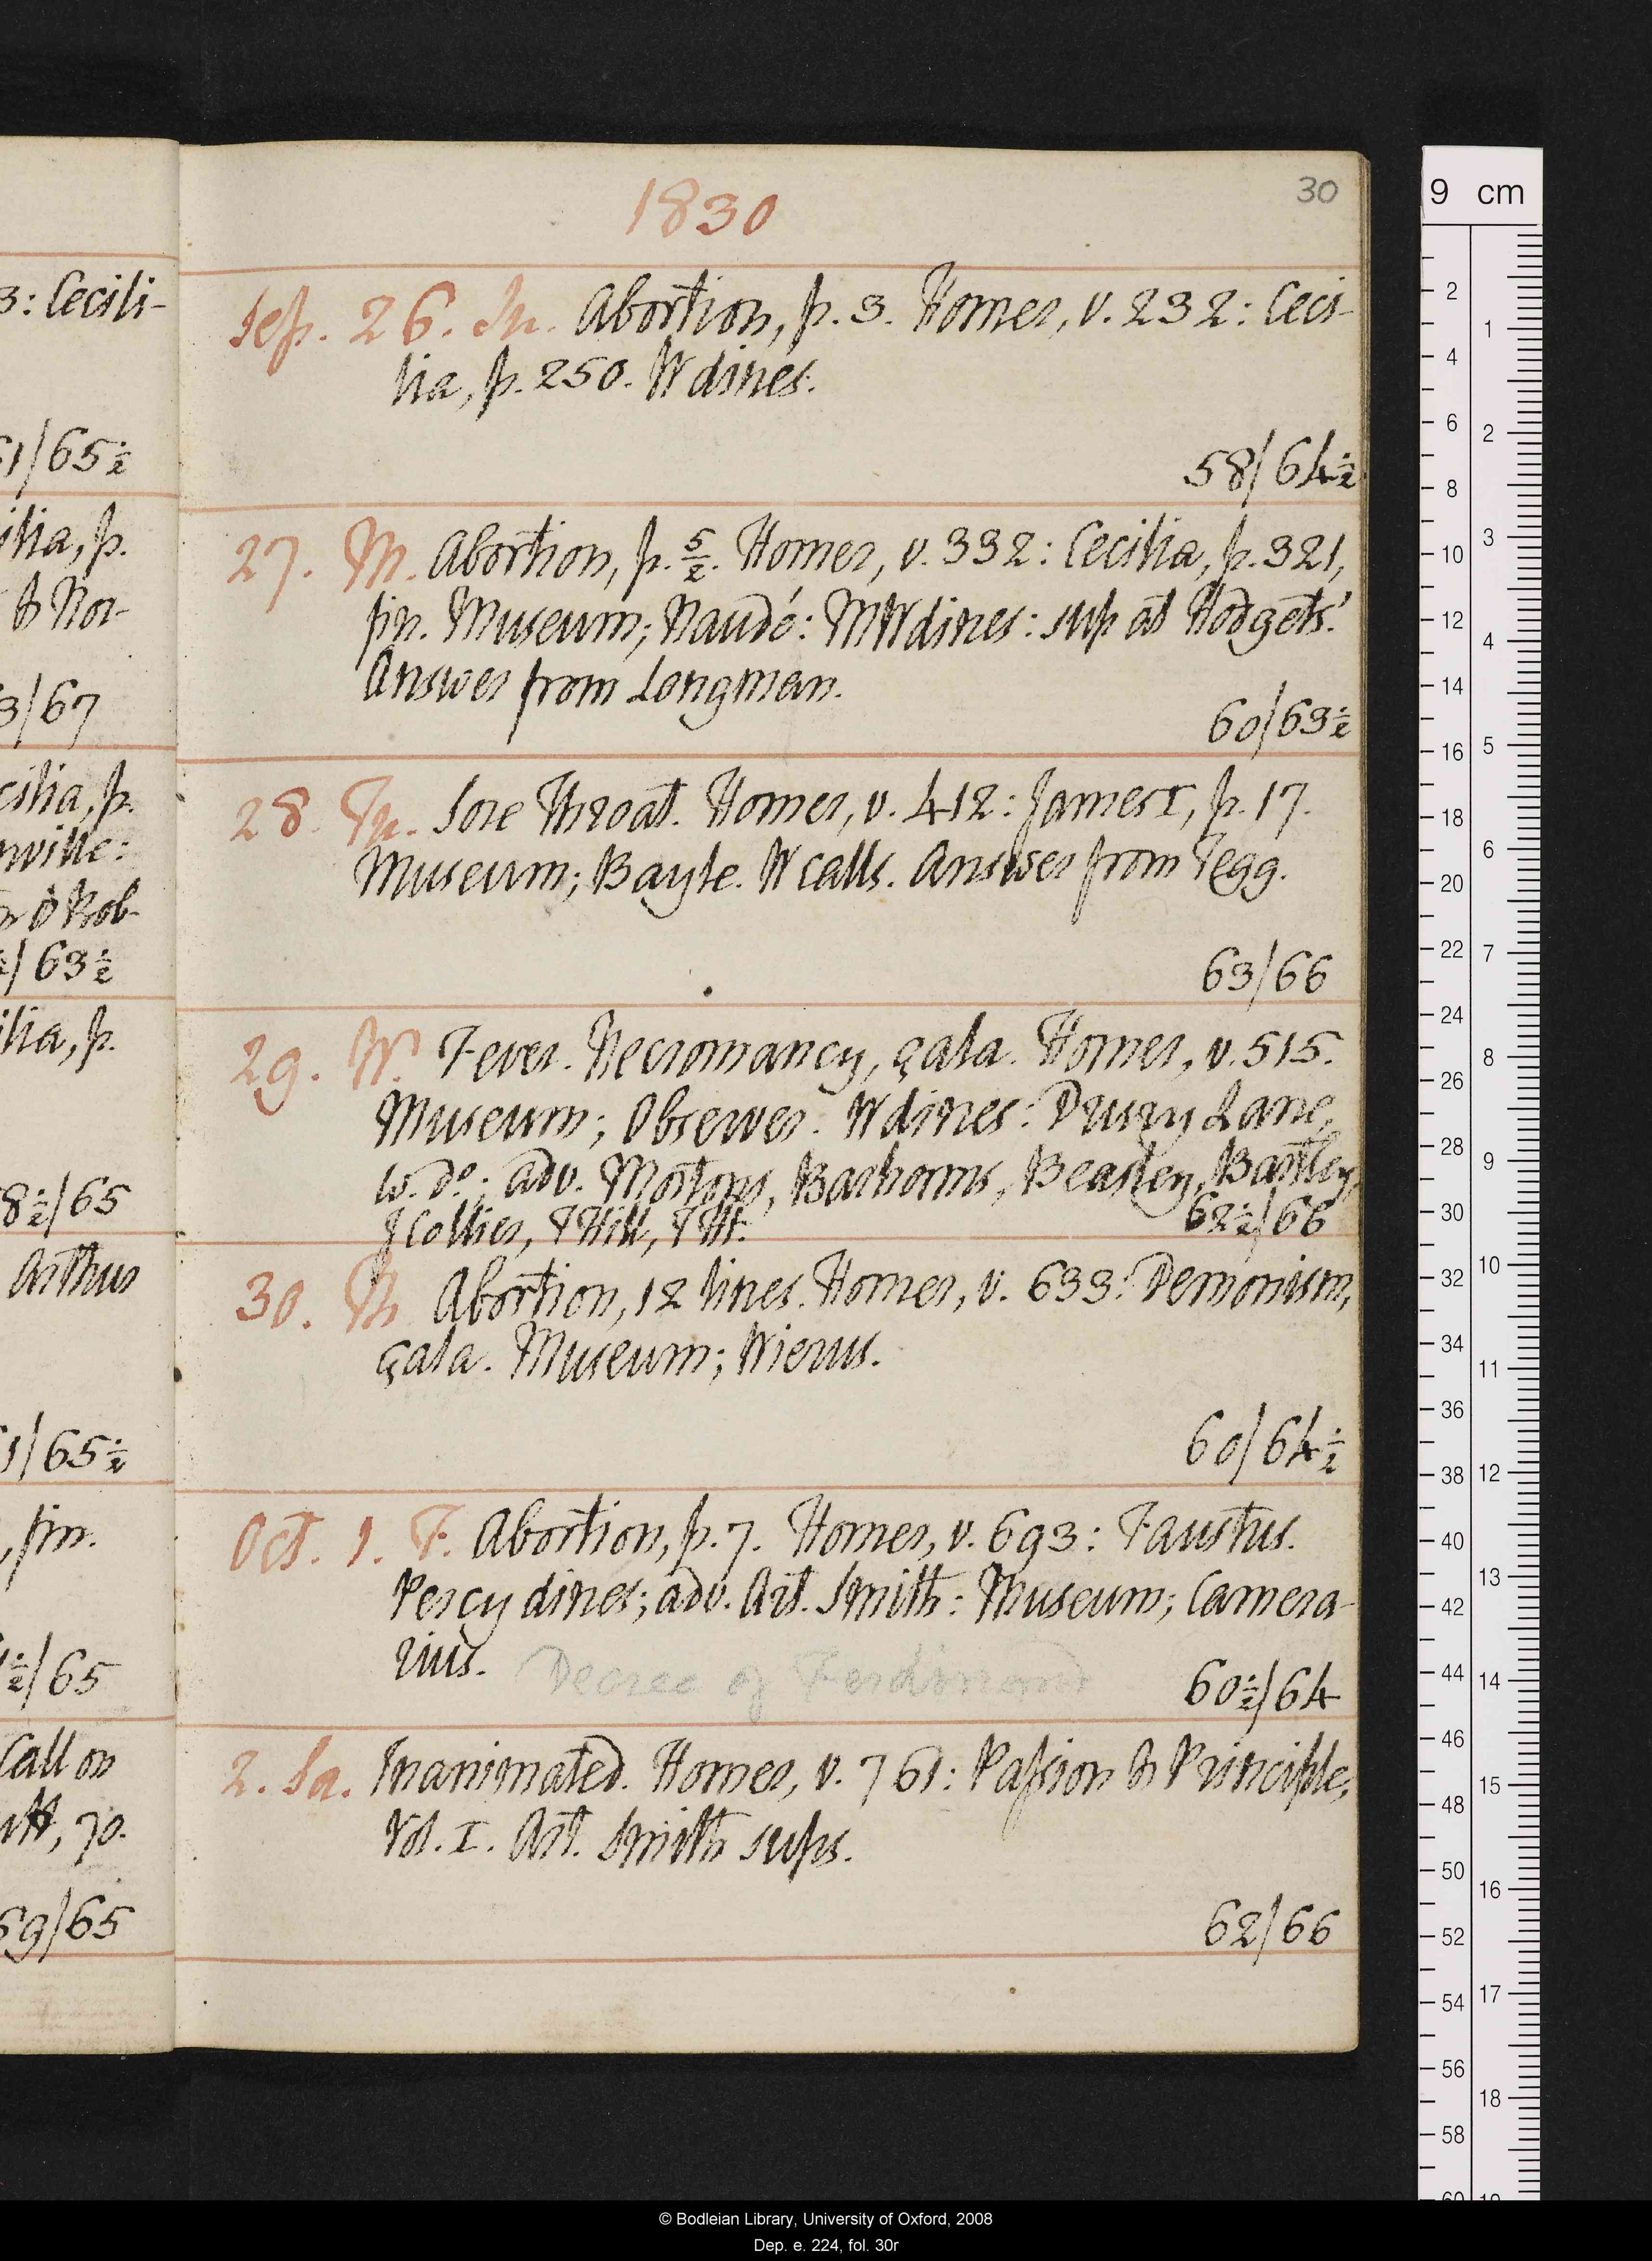 3: Cecili-
51/65½
ilia, p.
& Nor-
3/67
cilia, p.
nville:
63½
ilia, p.
8½/65
Arthur
1/65½
, fin.
½/65
Call on
, 70.
59/65
1830
30
Sep. 26. Su. Abortion, p. 3. Homer, v. 232: Ceci-
lia, p. 250. W dines.
58/64½
27. M. Abortion, p. 5/2. Homer, v. 332: Cecilia, p. 321,
fin. Museum; Naudé: MW dines: sup at Hodgets'.
Answer from Longman.
60/63½
28. Tu. Sore Throat. Homer, v. 412: James I, p. 17.
Museum; Bayle. W calls. Answer from Tegg.
63/66
29. W. Fever. Necromancy, çala. Homer, v. 515.
Museum; Observer. W dines: Drury Lane,
w. do; adv. Mortons, Barhams, Beasley, Bartley,
J Collier, T Hill, T Ht.
62½/66
30. Th. Abortion, 12 lines. Homer, v. 633: Demonism,
çala. Museum; Wierus.
60/64½
Oct. 1. F. Abortion, p. 7. Homer, v. 693: Faustus.
Percy dines; adv. Art. Smith: Museum; Camera-
rius. Decree of Ferdinand
60½/64
2. Sa. Inanimated. Homer, v. 761: Passion & Principle,
Vol. I. Art. Smith sups.
62/66
9 cm
2
4
6
8
10
12
14
16
18
20
22
24
26
28
30
32
34
36
38
40
42
44
46
48
50
52
54
56
58
60
1
2
3
4
5
6
7
8
9
10
11
12
13
14
15
16
17
18
19
© Bodleian Library, University of Oxford, 2008
Dep. e. 224, fol. 30r